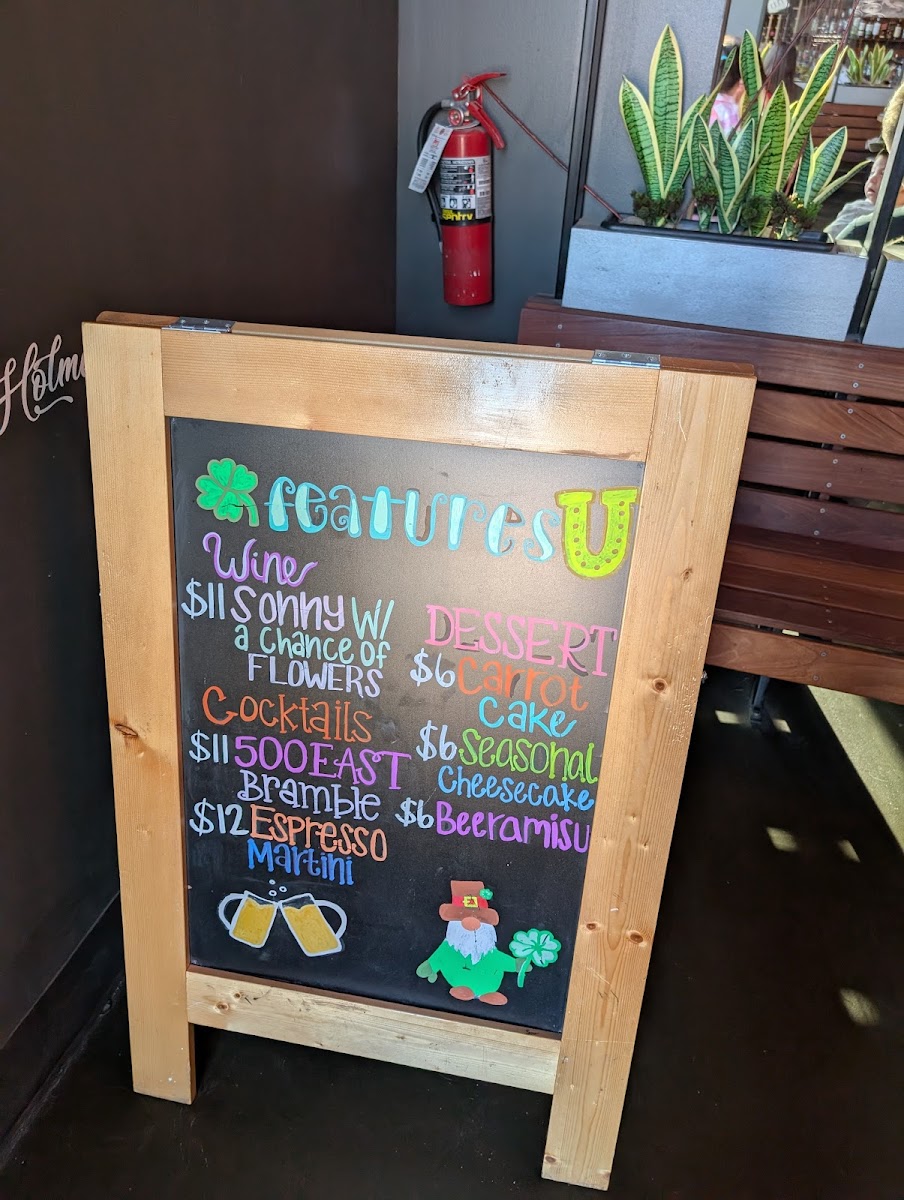 features
Wine
$11 Sonny W/
a Chance of
FLOWERS
Cocktails
$11 500 EAST
Bramble
$12 Espresso
Martini
DESSERT
$6 Carrot
Cake
$6 Seasonal
Cheesecake
$6 Beeramisu